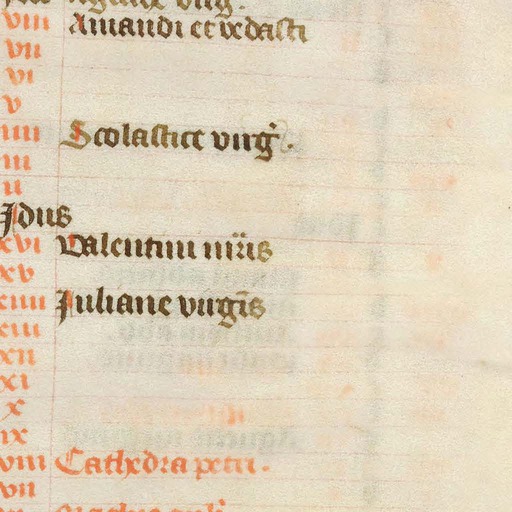 viii Amandi et vedasti
vii
vi
v
iiii Scolastice virg̃.
iii
ii
Idus
xvi Valentini mr̃is
xv
xiiii Iuliane virgĩs
xiii
xii
xi
x
ix
viii Cathedra petri.
vii